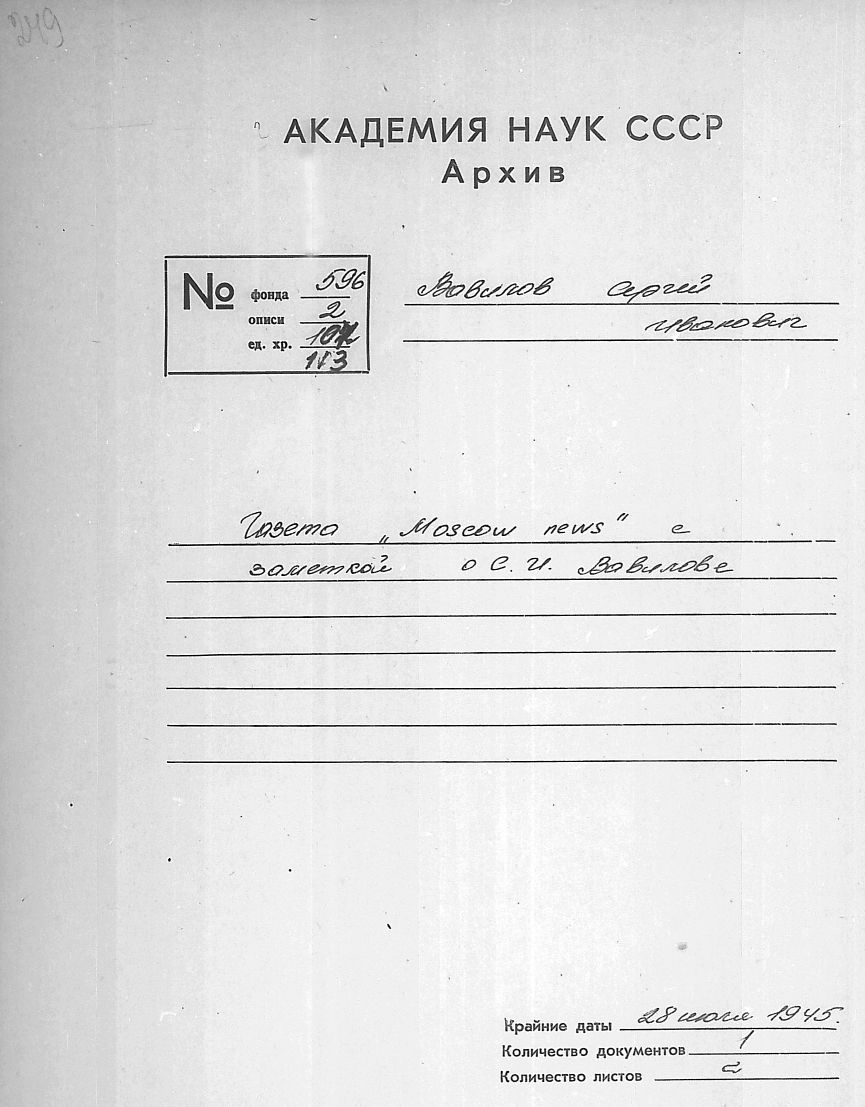 249
АКАДЕМИЯ НАУК СССР
Архив
№ фонда 596
описи 2
ед. хр.
113
Вавилов Сергей
Иванович
Газета „Moscow news" с
заметкой о С. И. Вавилове
Крайние даты 28 июля 1945.
Количество документов 1
Количество листов 2